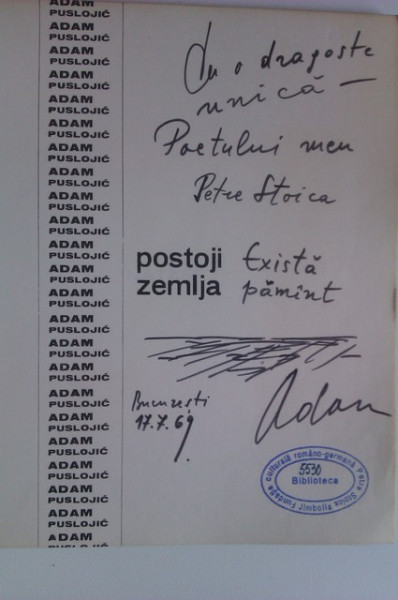 ADAM
PUSLOJIĆ
ADAM
PUSLOJIĆ
ADAM
PUSLOJIĆ
ADAM
PUSLOJIĆ
ADAM
PUSLOJIĆ
ADAM
PUSLOJIĆ
ADAM
PUSLOJIĆ
ADAM
PUSLOJIĆ
ADAM
PUSLOJIĆ
ADAM
PUSLOJIĆ
ADAM
PUSLOJIĆ
ADAM
PUSLOJIĆ
ADAM
PUSLOJIĆ
ADAM
PUSLOJIĆ
ADAM
PUSLOJIĆ
ADAM
PUSLOJIĆ
ADAM
PUSLOJIĆ
ADAM
PUSLOJIĆ
ADAM
PUSLOJIĆ
ADAM
PUSLOJIĆ
ADAM
PUSLOJIĆ
ADAM
PUSLOJIĆ
ADAM
PUSLOJIĆ
Cu o dragoste
unică —
Poetului meu
Petre Stoica
postoji Există
zemlja pămînt
București
17.7.69
Adam
Fundația culturală româno-germană Petre Stoica Jimbolia
5530
Biblioteca